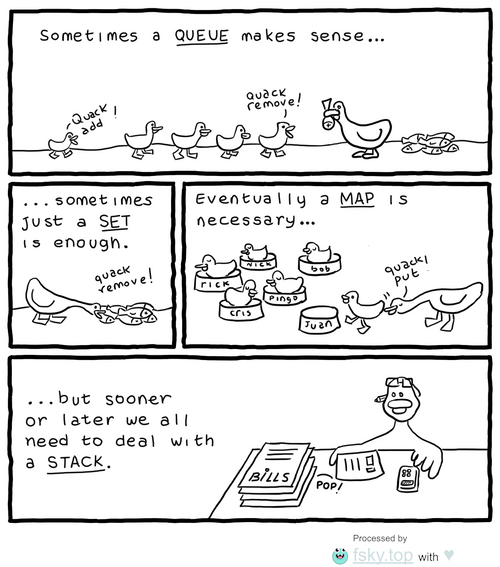 Sometimes a QUEUE makes sense...
Quack!
add
Quack
remove!
...sometimes
just a SET
is enough.
quack
remove!
Eventually a MAP is
necessary...
NICK
bob
rick
pingo
cris
Juan
quack!
put
...but sooner
or later we all
need to deal with
a STACK.
BILLS
POP!
Processed by
fsky.top with ♥